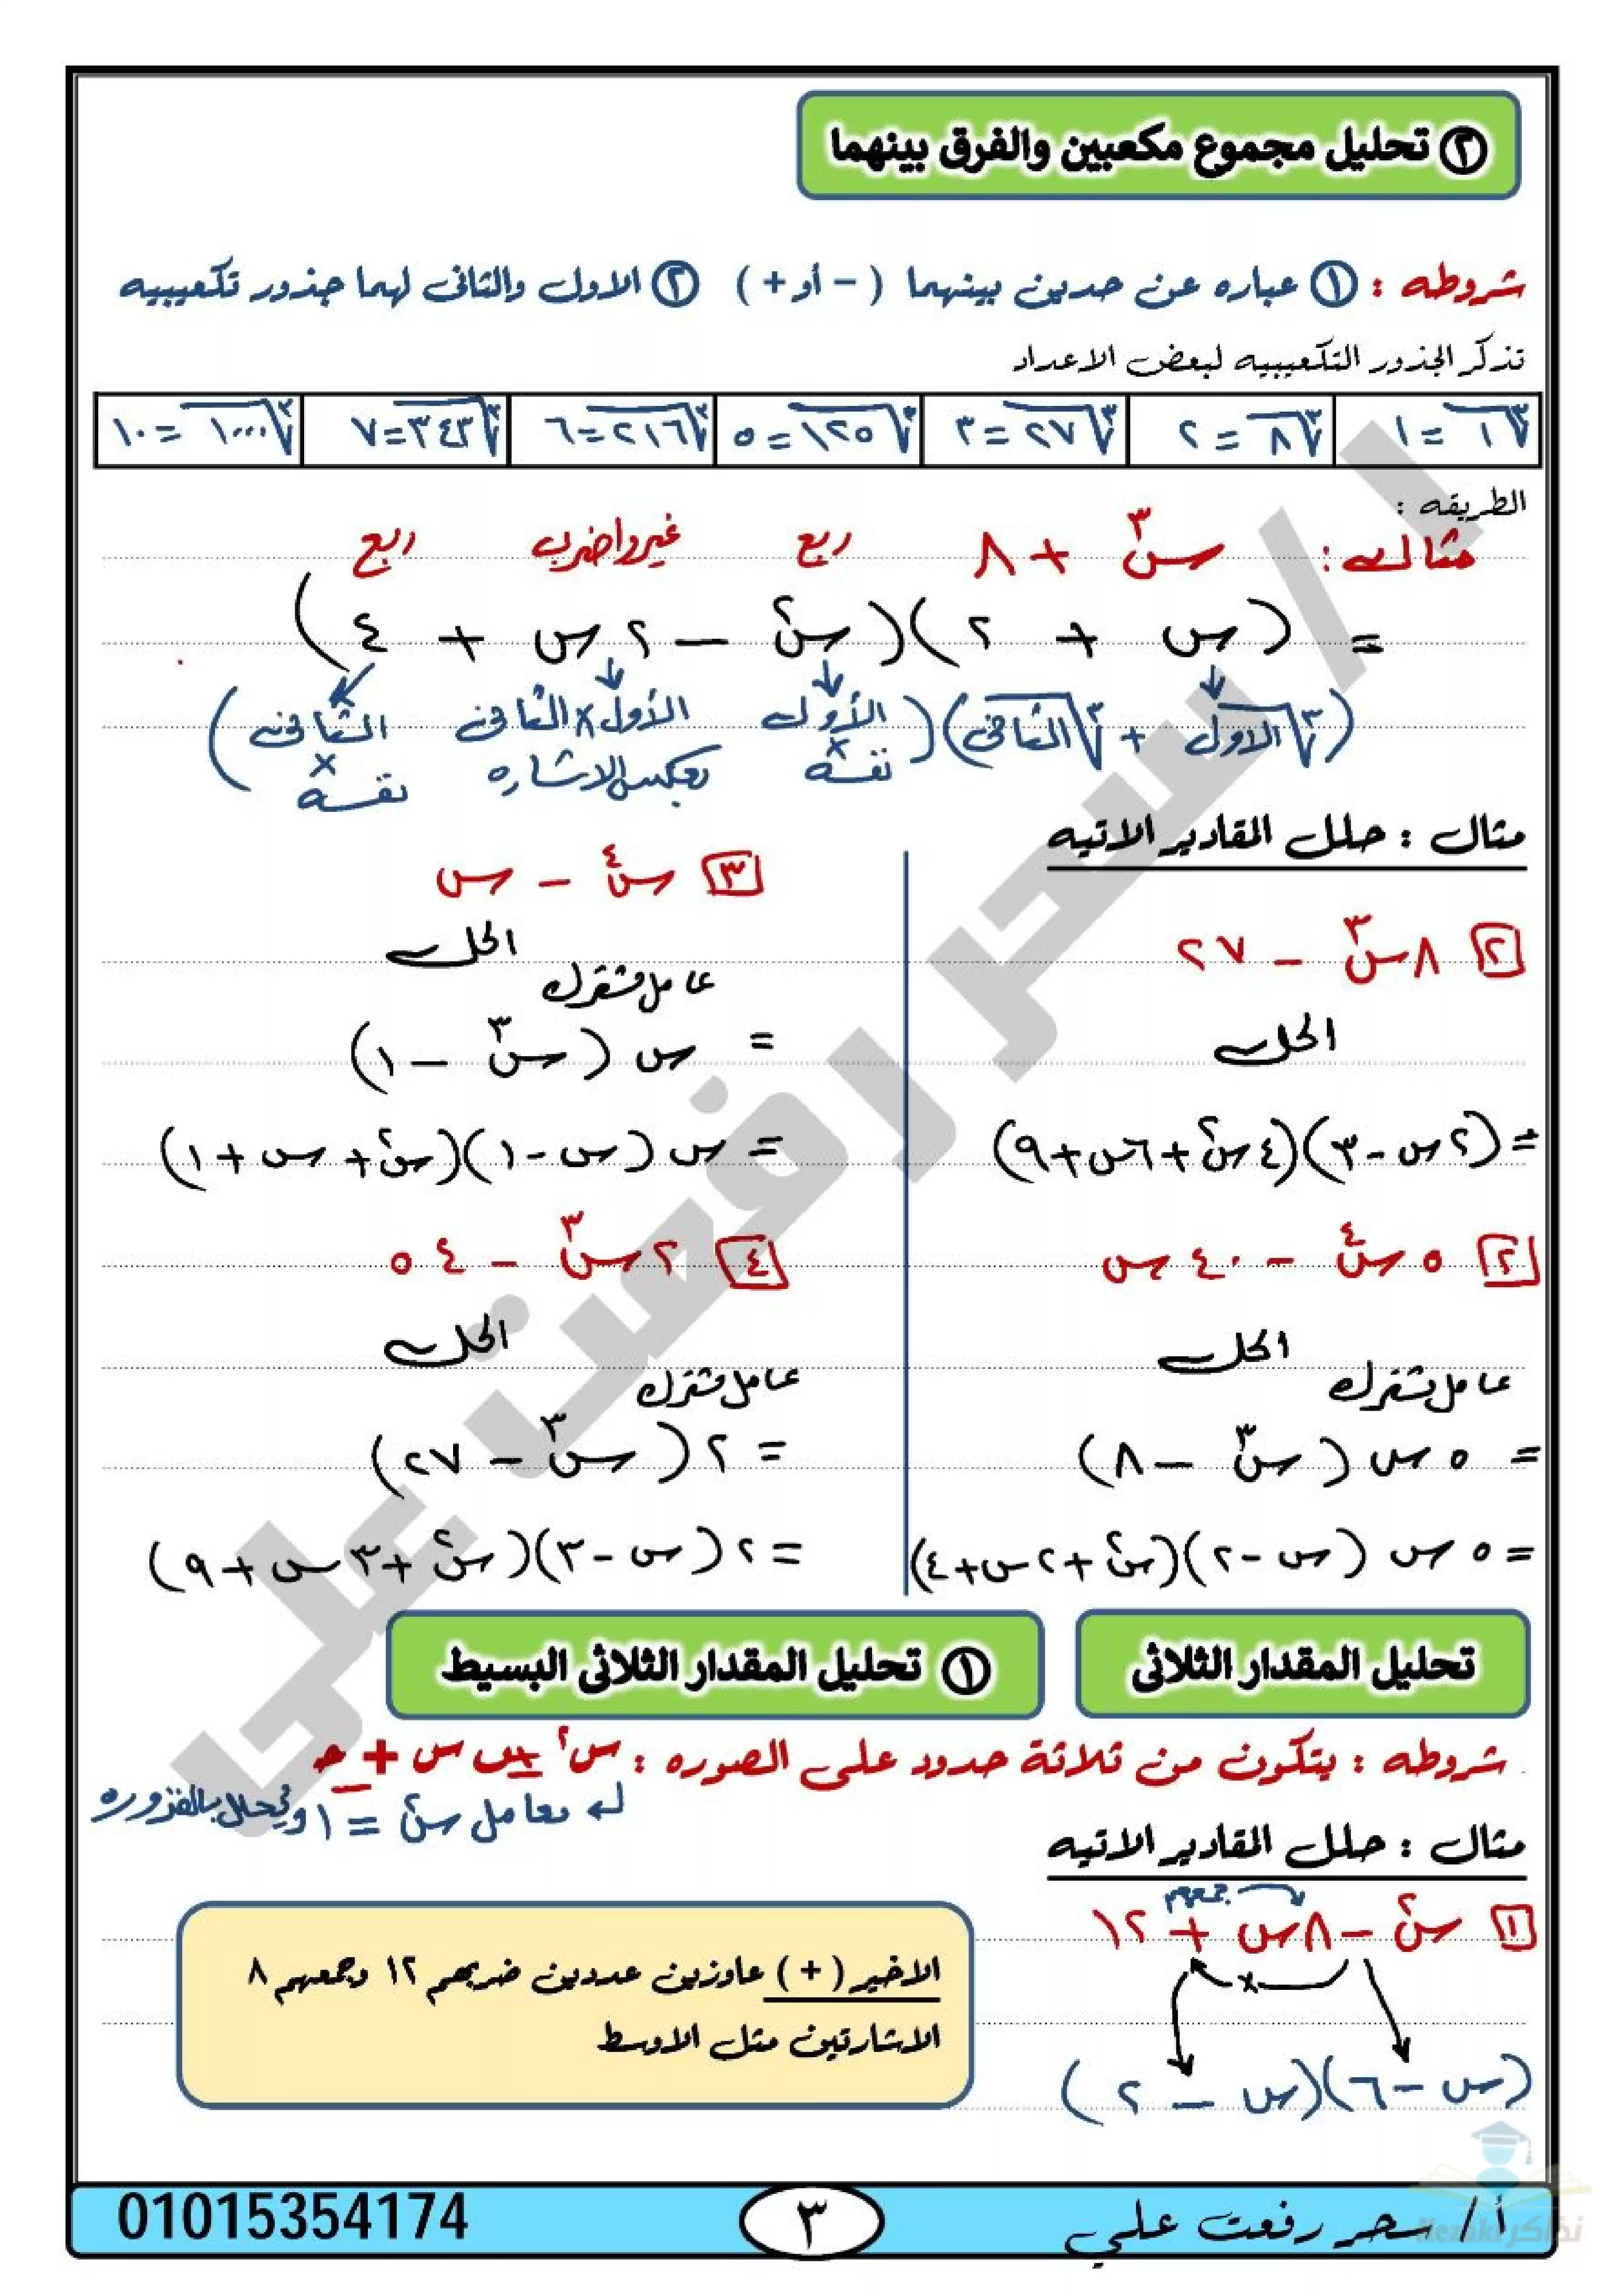 ٢ تحليل مجموع مكعبين والفرق بينهما
شروطه : ١ عباره عن حدين بينهما ( - أو + ) ٢ الاول والثانى لهما جذور تكعيبيه
تذكر الجذور التكعيبيه لبعض الاعداد
∛١ = ١ ∛٨ = ٢ ∛٢٧ = ٣ ∛١٢٥ = ٥ ∛٢١٦ = ٦ ∛٣٤٣ = ٧ ∛١٠٠٠ = ١٠
الطريقه :
مثال : س٣ + ٨ ربع غير واضرب ربع
= (س + ٢)(س٢ - ٢س + ٤)
(∛الاول + ∛الثانى)(الأول × نفسه الأول × الثانى بعكس الاشاره الثانى × نفسه)
مثال : حلل المقادير الاتيه
٢ ٨س٣ - ٢٧
الحل
= (٢س - ٣)(٤س٢ + ٦س + ٩)
٢ ٥س٤ - ٤٠س
الحل
عامل مشترك
= ٥س (س٣ - ٨)
= ٥س (س - ٢)(س٢ + ٢س + ٤)
٣ س٤ - س
الحل
عامل مشترك
= س (س٣ - ١)
= س (س - ١)(س٢ + س + ١)
٤ ٢س٣ - ٥٤
الحل
عامل مشترك
= ٢ (س٣ - ٢٧)
= ٢ (س - ٣)(س٢ + ٣س + ٩)
تحليل المقدار الثلاثى
١ تحليل المقدار الثلاثى البسيط
شروطه : يتكون من ثلاثة حدود على الصوره : س٢ ± ب س ± جـ
معامل س٢ = ١ ويحلل بالفزوره
مثال : حلل المقادير الاتيه
١ س٢ - ٨س + ١٢
جمعهم
×
(س - ٦)(س - ٢)
الاخير ( + ) عاوزين عددين ضربهم ١٢ وجمعهم ٨
الاشارتين مثل الاوسط
أ/ سحر رفعت علي
٣
01015354174
أ/ سحر رفعت على
نذاكر Nezakr